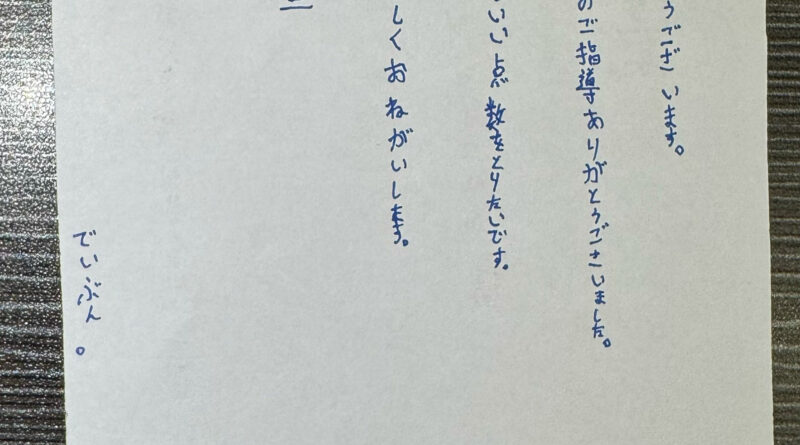 うございます。
のご指導ありがとうございました。
いい点数をとりたいです。
しくおねがいします。
でいぶん。